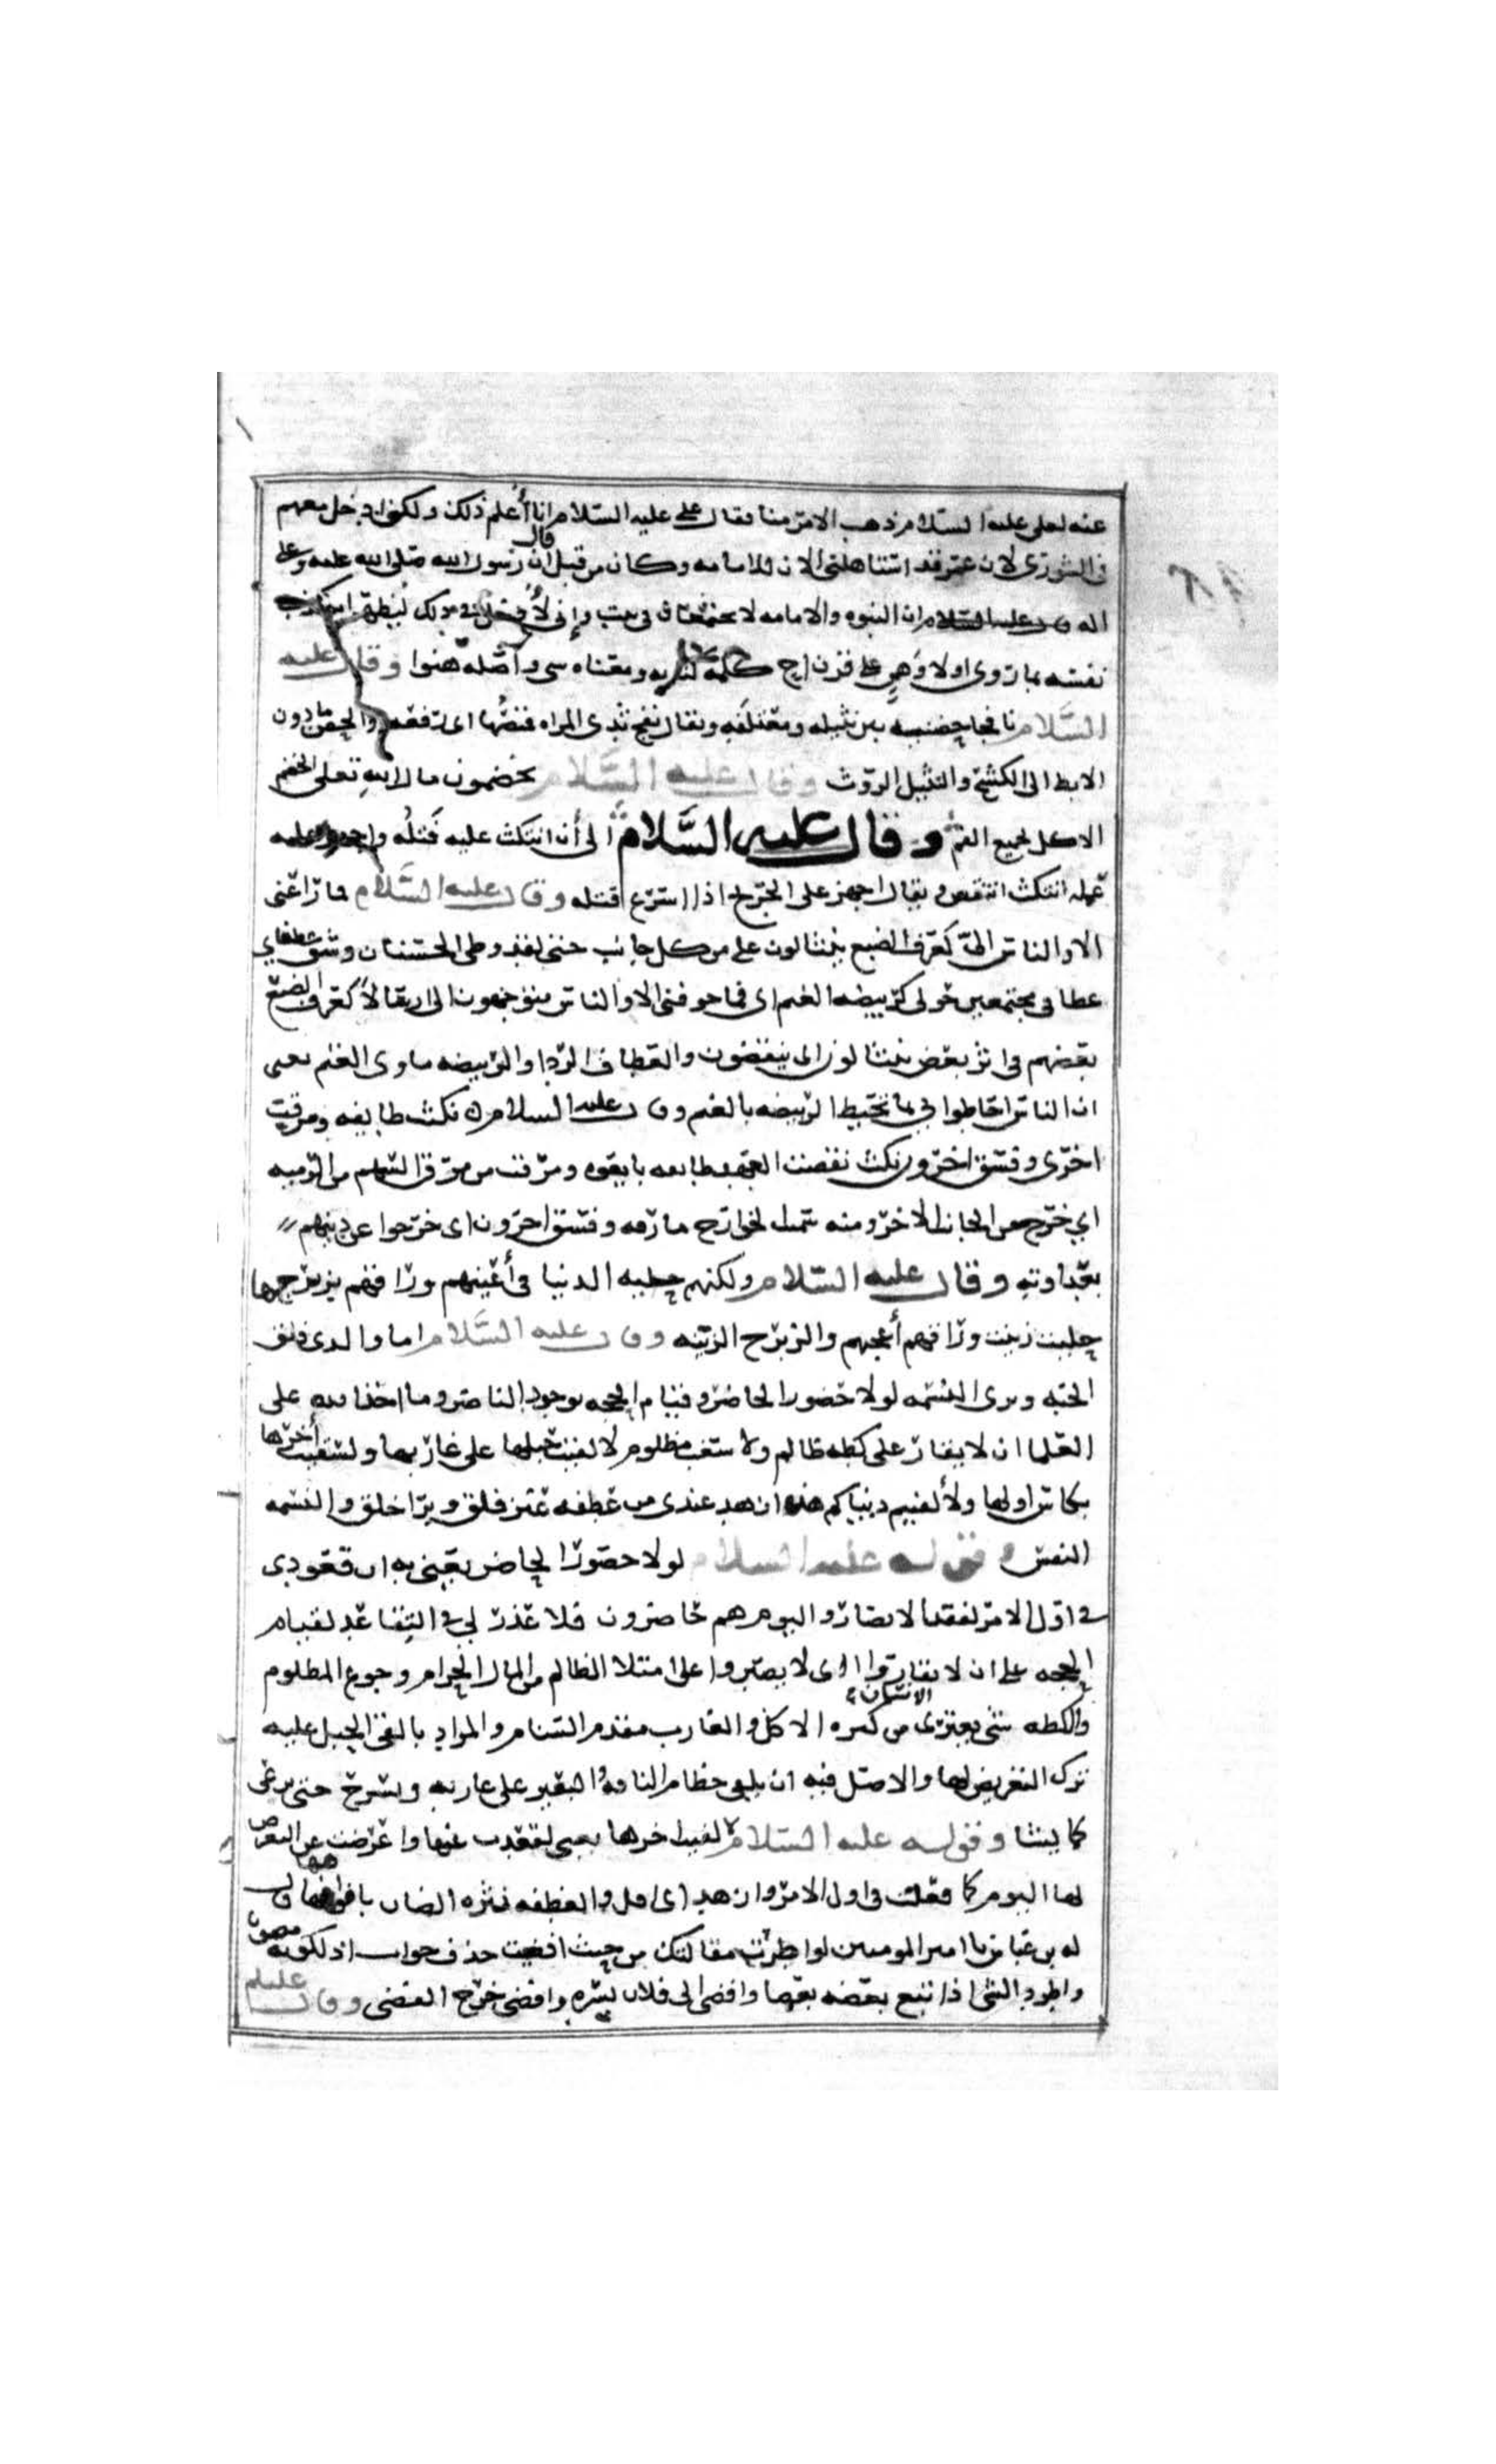 عنه لعلي عليه السلام ذهب الامر منا فقال علي عليه السلام انا أعلم ذلك ولكنى ادخل معهم
في الشورى لان عمر قد استاهلني الان للامامه وكان من قبل قال ان رسول الله صلى الله عليه وعلى
اله قال ان النبوه والامامه لا يجتمعان في بيت وإني لأدخل في ذلك ليظهر
نفسه بما روى اولا وهي على وزن اخ كلمة كنايه ومعناه شي واصله هنوا وقال عليه
السلام نافجا حضنيه بين نثيله ومعتلفه ويقال نفج ثدي المراه قميصها اى رفعه والحضن ما دون
الابط الى الكشح والنثيل الروث وقال عليه السلام يخضمون مال الله تعلى الخضم
الاكل بجميع الفم وقال عليه السلام الى أن انتكث عليه فتله واجهز عليه
عمله انتكث انتقض ويقال اجهز على الجريح اذا اسرع قتله وقال عليه السلام فما راعني
الا والناس الى كعرف الضبع ينثالون علي من كل جانب حتى لقد وطى الحسنان وشق عطفاي
عطافي مجتمعين حولى كربيضه الغنم اى فما خوفنى الا والناس متوجهون الى ارسالا كعرف الضبع
بعضهم في اثر بعض ينثالون اى ينقضون والعطاف الردا والربيضه ماوى الغنم يعني
ان الناس احاطوا بي كما تحيط الربيضه بالغنم وقال عليه السلام نكثت طايفه ومرقت
اخرى وفسق اخرون نكثت نقضت العهد طايفه بايعوه ومرقت من مروق السهم من الرميه
اي خرج من الجانب الاخر ومنه سميت الخوارج مارقه وفسق اخرون اى خرجوا عن دينهم
بعداوته وقال عليه السلام ولكنهم حليت الدنيا في أعينهم وراقهم زبرجها
حليت زينت وراقهم أعجبهم والزبرج الزينه وقال عليه السلام اما والذي فلق
الحبه وبرى النسمه لولا حضور الحاضر وقيام الحجه بوجود الناصر وما اخذ الله على
العلما ان لا يقار على كظه ظالم ولا سغب مظلوم لالقيت حبلها على غاربها ولسقيت أخرها
بكاس اولها ولألفيتم دنياكم هذه ازهد عندى من عطفه عنز فلق وبرا خلق والنسمه
النفس وقوله عليه السلام لولا حضور الحاضر يعني به ان قعودي
في اول الامر لفقد الانصار واليوم هم حاضرون فلا عذر لي في التقاعد لقيام
الحجه على ان لا يقاروا اى لا يصبروا على امتلا الظالم من المال الحرام وجوع المظلوم
والكظه شي يعتري الانسان من كثره الاكل والغارب مقدم السنام والمراد بالقى الحبل عليه
ترك التعريض لها والاصل فيه ان يلقى خطام الناقه او البعير على غاربه ويسرح حتى يرعى
كما يشا وقوله عليه السلام لسقيت اخرها يعني لقعدت عنها واعرضت عن التعرض
لها اليوم كما فعلت في اول الامر وازهد اى اقل والعطفه نثره الضان بافواهها قال
له بن عباس يا امير المومنين لو اطردت مقالتك من حيث افضيت حذف جواب
واطرد الشي اذا تبع بعضه بعضا وافضى الى فلان بسره وافضى خرج الفضى وقال عليلم